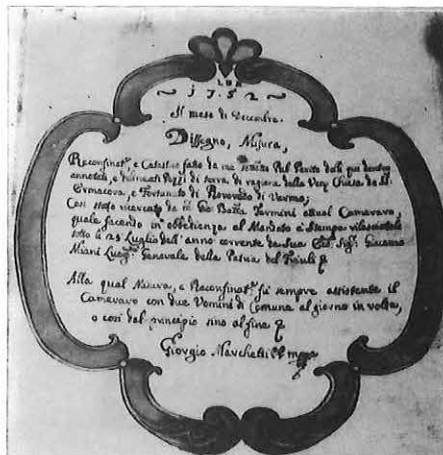 LDM
~ 1752 ~
Il mese di Decembre.
Dissegno, Misura,
Reconfinat.e, e Catastico fatto da me Pub. Perito delli qui dentro
annotati, e delineati Pezzi di terra, di ragione della Ven. Chiesa de SS.
Ermacora, e Fortunato di Roveredo di Varmo;
Così stato ricercato da m. Gio: Batta Termini attual Cameraro,
quale facendo in obbedienza al Mandato à Stampa rilasciatoli
sotto li 25 Luglio dell'anno corrente da Sua Ecc. Sig. Giacomo
Miani Luog. Generale della Patria del Friuli
Alla qual Misura, e Reconfinat.e fù sempre assistente il
Cameraro con due Uomini di Comune al giorno in volta,
e così dal principio sino al fine
Giorgio Marchetti